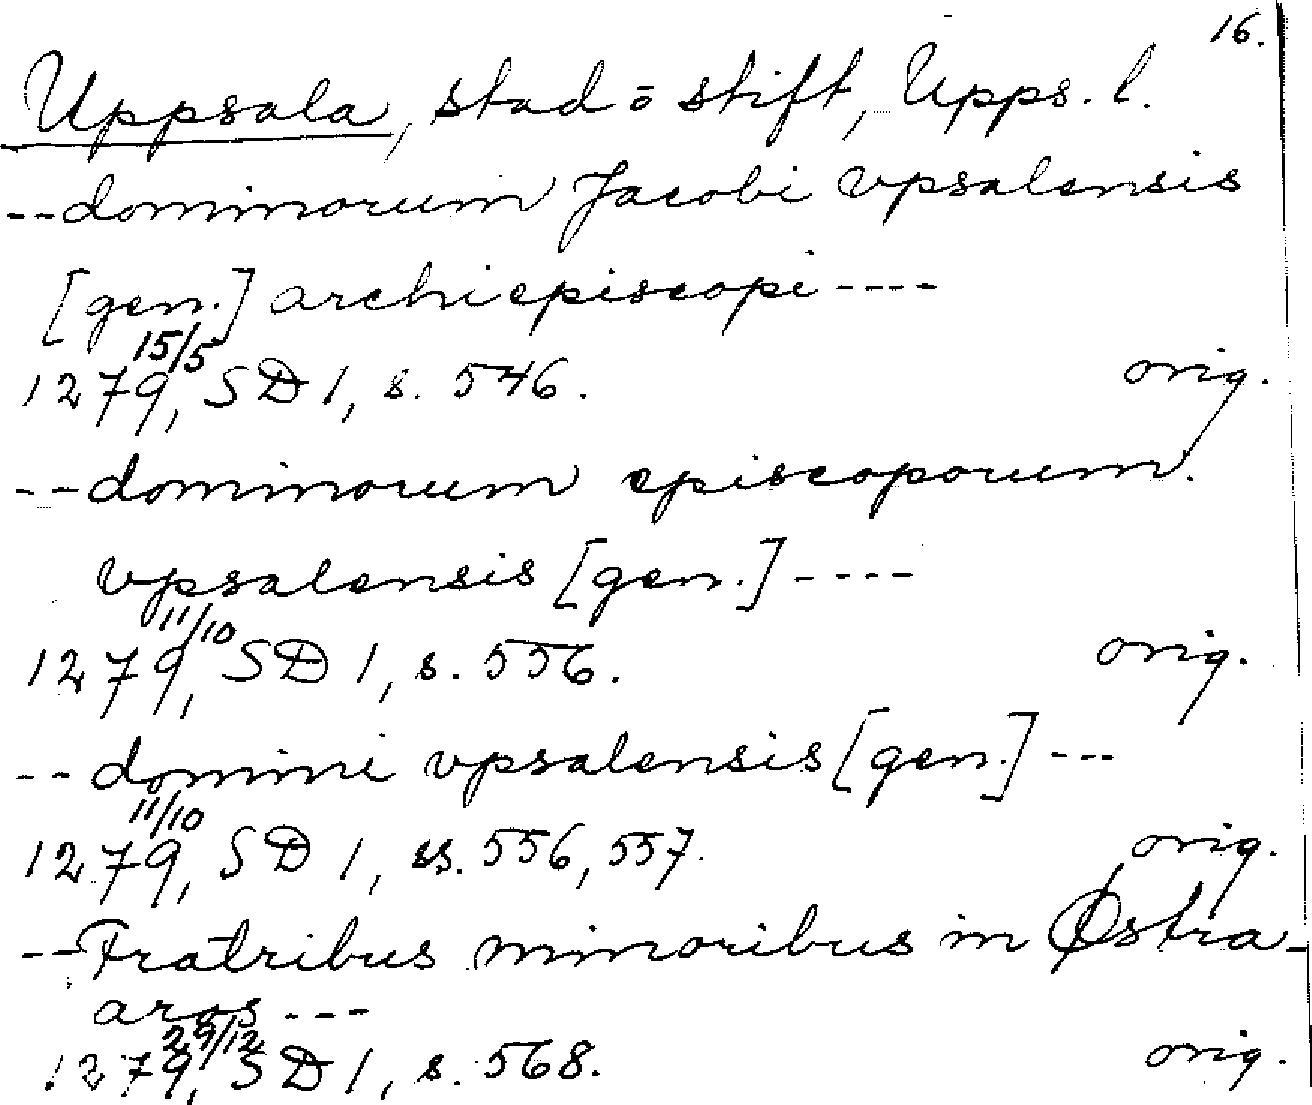 16.
Uppsala, stad o stift, Upps. l.
-- dominorum Jacobi vpsalensis
[gen.] archiepiscopi ----
1279 15/5, SD 1, s. 546. orig.
-- dominorum episcoporum.
vpsalensis [gen.] ----
1279 11/10, SD 1, s. 556. orig.
-- domini vpsalensis [gen.] ---
1279 11/10, SD 1, ss. 556, 557. orig.
-- Fratribus minoribus in Østra-
aros ---
1279 29/12, SD 1, s. 568. orig.